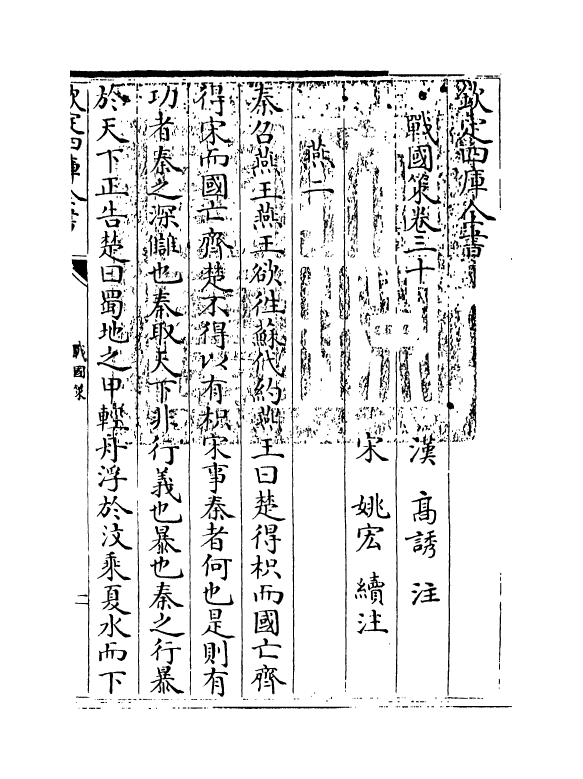 欽定四庫全書
戰國策卷三十
漢 高誘 注
宋 姚宏 續注
燕二
秦召燕王燕王欲徃蘇代約燕王曰楚得枳而國亡齊
得宋而國亡齊楚不得以有枳宋事秦者何也是則有
功者秦之深讎也秦取天下非行義也暴也秦之行暴
於天下正告楚曰蜀地之甲輕舟浮於汶乘夏水而下
欽定四庫全書
戰國策
二